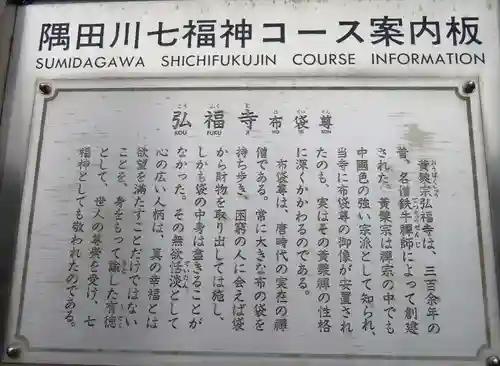 隅田川七福神コース案内板
SUMIDAGAWA SHICHIFUKUJIN COURSE INFORMATION
弘福寺布袋尊
KOU FUKU JI HO TEI SON
黄檗宗弘福寺は、三百余年の
昔、名僧鉄牛禅師によって創建
された。黄檗宗は禅宗の中でも
中国色の強い宗派として知られ、
当寺に布袋尊の御像が安置され
たのも、実はその黄檗禅の性格
に深くかかわるのである。
布袋尊は、唐時代の実在の禅
僧である。常に大きな布の袋を
持ち歩き、困窮の人に会えば袋
から財物を取り出しては施し、
しかも袋の中身は尽きることが
なかった。その無欲恬淡として
心の広い人柄は、真の幸福とは
欲望を満たすことだけではない
ことを、身をもって諭した有徳
として、世人の尊崇を受け、七
福神としても敬われたのである。